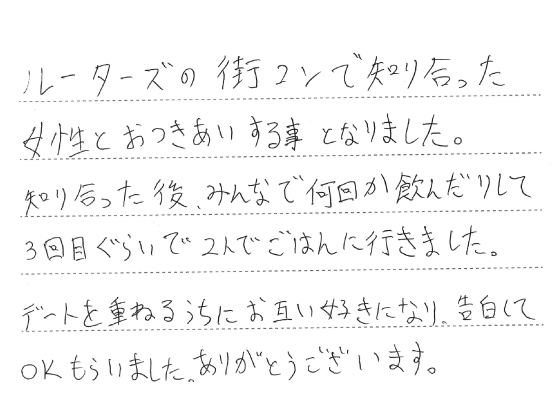 ルーターズの街コンで知り合った
女性とおつきあいする事となりました。
知り合った後、みんなで何回か飲んだりして
3回目ぐらいで2人でごはんに行きました。
デートを重ねるうちにお互い好きになり、告白して
OKもらいました、ありがとうございます。